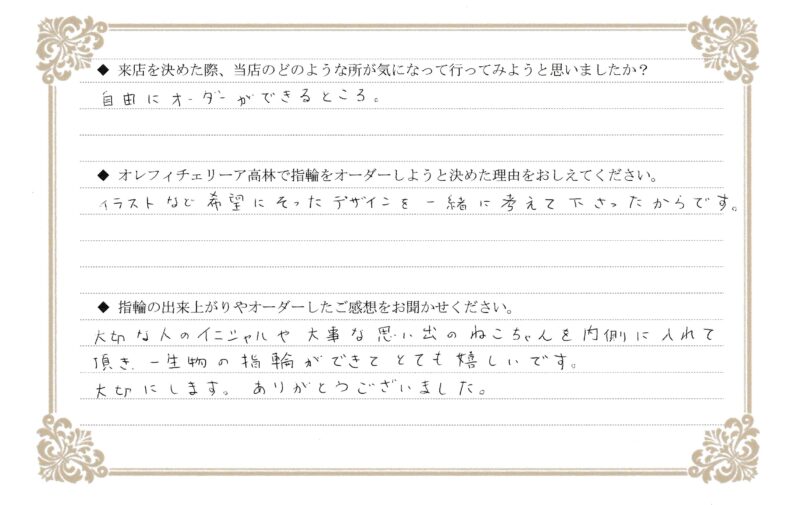 ◆ 来店を決めた際、当店のどのような所が気になって行ってみようと思いましたか？
自由にオーダーができるところ。
◆ オレフィチェリーア高林で指輪をオーダーしようと決めた理由をおしえてください。
イラストなど希望にそったデザインを一緒に考えて下さったからです。
◆ 指輪の出来上がりやオーダーしたご感想をお聞かせください。
大切な人のイニシャルや大事な思い出のねこちゃんを内側に入れて
頂き、一生物の指輪ができてとても嬉しいです。
大切にします。ありがとうございました。